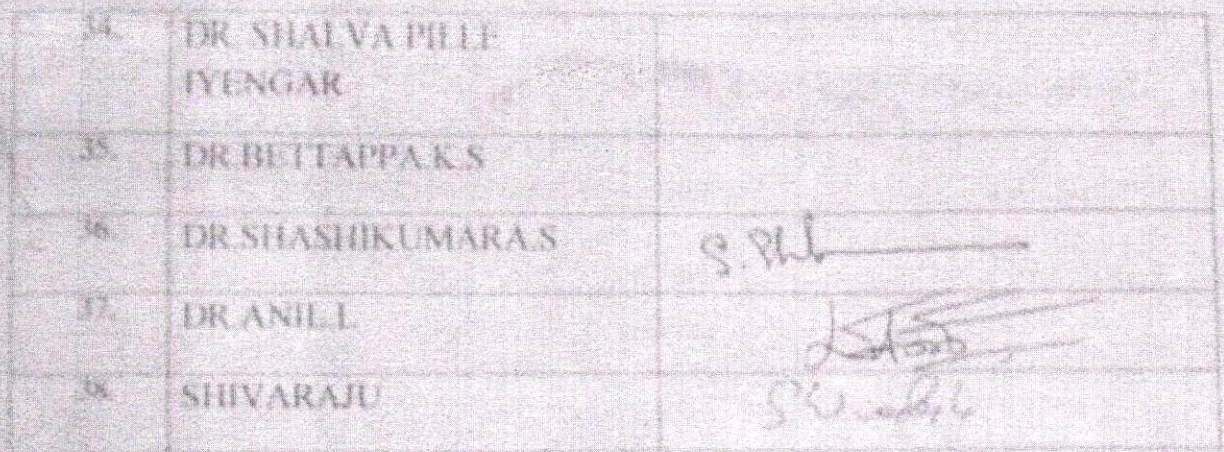 34. DR. SHALVA PILLE
IYENGAR
35. DR.BETTAPPA.K.S
36. DR.SHASHIKUMARA.S
37. DR.ANIL.L
38. SHIVARAJU